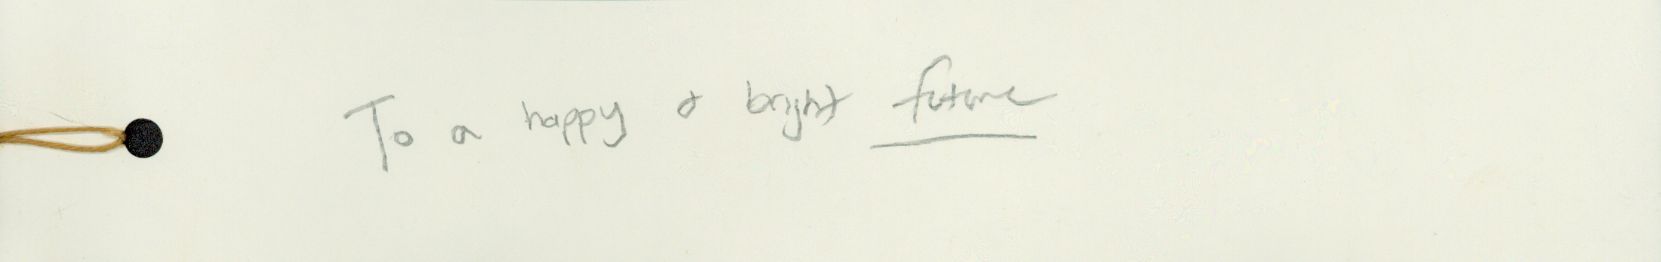 To a happy & bright future